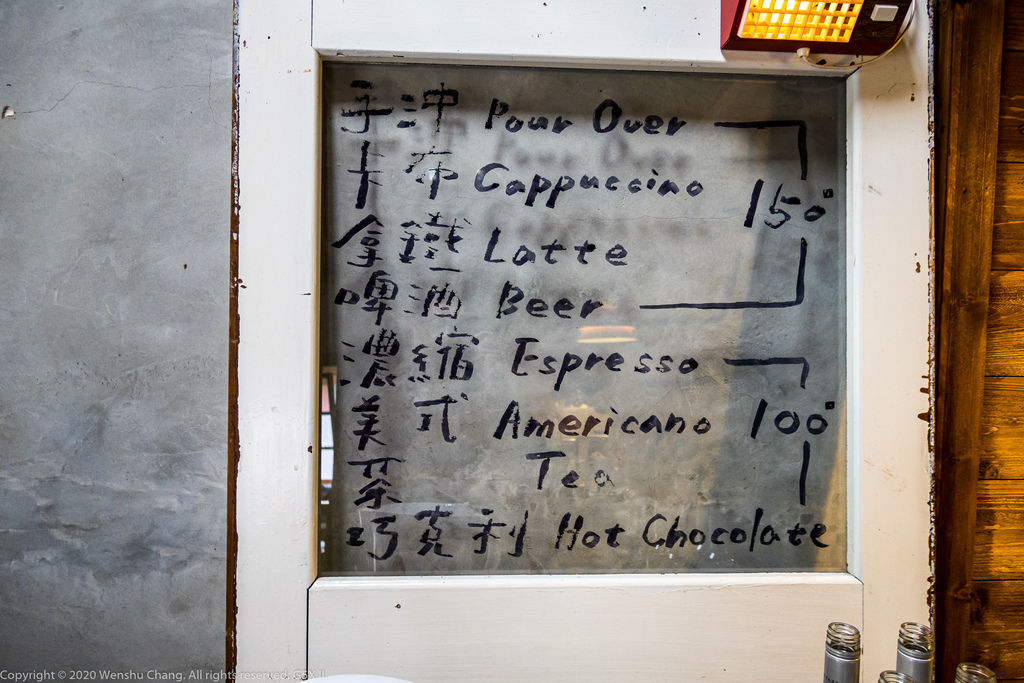 手沖 Pour Over
卡布 Cappuccino
150°
拿鐵 Latte
啤酒 Beer
濃縮 Espresso
美式 Americano 100°
茶 Tea
巧克利 Hot Chocolate
Copyright © 2020 Wenshu Chang. All rights reserved.